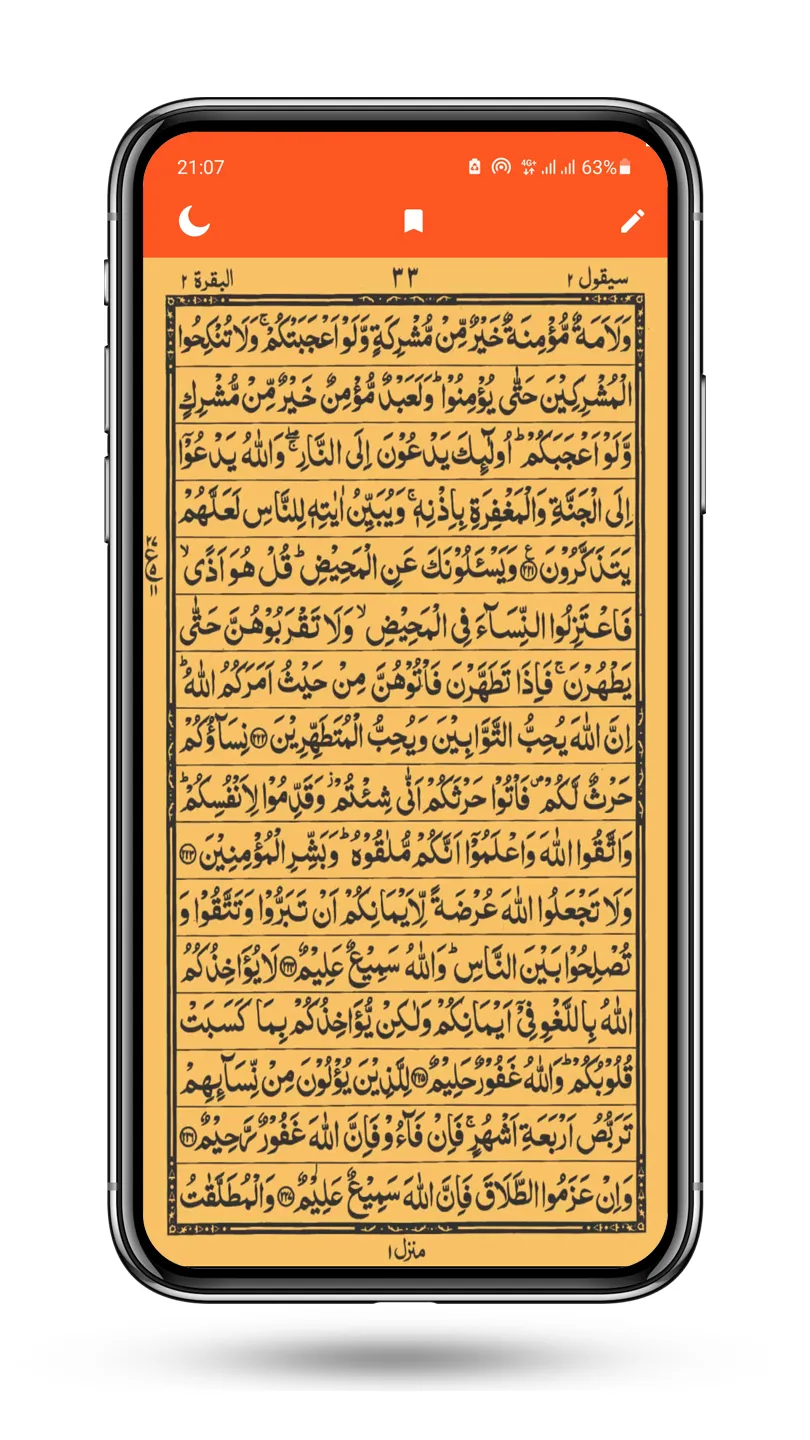 21:07 4G+ 63%
البقرة ٢ ٣٣ سيقول ٢
وَلَاَمَةٌ مُّؤْمِنَةٌ خَيْرٌ مِّنْ مُّشْرِكَةٍ وَّلَوْ اَعْجَبَتْكُمْ ۚ وَلَا تُنْكِحُوا
الْمُشْرِكِيْنَ حَتّٰى يُؤْمِنُوْا ؕ وَلَعَبْدٌ مُّؤْمِنٌ خَيْرٌ مِّنْ مُّشْرِكٍ
وَّلَوْ اَعْجَبَكُمْ ؕ اُولٰٓئِكَ يَدْعُوْنَ اِلَى النَّارِ ۖۚ وَاللّٰهُ يَدْعُوْٓا
اِلَى الْجَنَّةِ وَالْمَغْفِرَةِ بِاِذْنِهٖ ۚ وَيُبَيِّنُ اٰيٰتِهٖ لِلنَّاسِ لَعَلَّهُمْ
يَتَذَكَّرُوْنَ ۝٢٢١ ع وَيَسْـَٔلُوْنَكَ عَنِ الْمَحِيْضِ ؕ قُلْ هُوَ اَذًى ۙ
فَاعْتَزِلُوا النِّسَآءَ فِى الْمَحِيْضِ ۙ وَلَا تَقْرَبُوْهُنَّ حَتّٰى
يَطْهُرْنَ ۚ فَاِذَا تَطَهَّرْنَ فَاْتُوْهُنَّ مِنْ حَيْثُ اَمَرَكُمُ اللّٰهُ ؕ
اِنَّ اللّٰهَ يُحِبُّ التَّوَّابِيْنَ وَيُحِبُّ الْمُتَطَهِّرِيْنَ ۝٢٢٢ نِسَآؤُكُمْ
حَرْثٌ لَّكُمْ ۪ فَاْتُوْا حَرْثَكُمْ اَنّٰى شِئْتُمْ ز وَقَدِّمُوْا لِاَنْفُسِكُمْ ؕ
وَاتَّقُوا اللّٰهَ وَاعْلَمُوْٓا اَنَّكُمْ مُّلٰقُوْهُ ؕ وَبَشِّرِ الْمُؤْمِنِيْنَ ۝٢٢٣
وَلَا تَجْعَلُوا اللّٰهَ عُرْضَةً لِّاَيْمَانِكُمْ اَنْ تَبَرُّوْا وَتَتَّقُوْا وَ
تُصْلِحُوْا بَيْنَ النَّاسِ ؕ وَاللّٰهُ سَمِيْعٌ عَلِيْمٌ ۝٢٢٤ لَا يُؤَاخِذُكُمُ
اللّٰهُ بِاللَّغْوِ فِيْٓ اَيْمَانِكُمْ وَلٰكِنْ يُّؤَاخِذُكُمْ بِمَا كَسَبَتْ
قُلُوْبُكُمْ ؕ وَاللّٰهُ غَفُوْرٌ حَلِيْمٌ ۝٢٢٥ لِلَّذِيْنَ يُؤْلُوْنَ مِنْ نِّسَآئِهِمْ
تَرَبُّصُ اَرْبَعَةِ اَشْهُرٍ ۚ فَاِنْ فَآءُوْ فَاِنَّ اللّٰهَ غَفُوْرٌ رَّحِيْمٌ ۝٢٢٦
وَاِنْ عَزَمُوا الطَّلَاقَ فَاِنَّ اللّٰهَ سَمِيْعٌ عَلِيْمٌ ۝٢٢٧ وَالْمُطَلَّقٰتُ
منزل ١